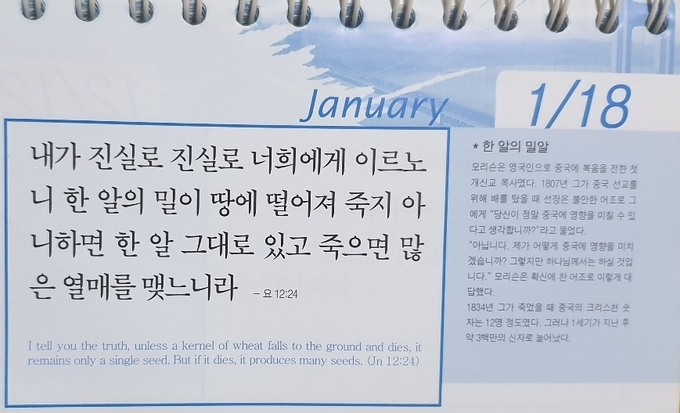 January
1/18
내가 진실로 진실로 너희에게 이르노
니 한 알의 밀이 땅에 떨어져 죽지 아
니하면 한 알 그대로 있고 죽으면 많
은 열매를 맺느니라 - 요 12:24
I tell you the truth, unless a kernel of wheat falls to the ground and dies, it
remains only a single seed. But if it dies, it produces many seeds. (Jn 12:24)
* 한 알의 밀알
모리슨은 영국인으로 중국에 복음을 전한 첫
개신교 목사였다. 1807년 그가 중국 선교를
위해 배를 탔을 때 선장은 불만한 어조로 그
에게 "당신이 정말 중국에 영향을 미칠 수 있
다고 생각합니까?"라고 물었다.
"아닙니다. 제가 어떻게 중국에 영향을 미치
겠습니까? 그렇지만 하나님께서는 하실 것입
니다." 모리슨은 확신에 찬 어조로 이렇게 대
답했다.
1834년 그가 죽었을 때 중국의 크리스천 숫
자는 12명 정도였다. 그러나 1세기가 지난 후
약 3백만의 신자로 늘어났다.